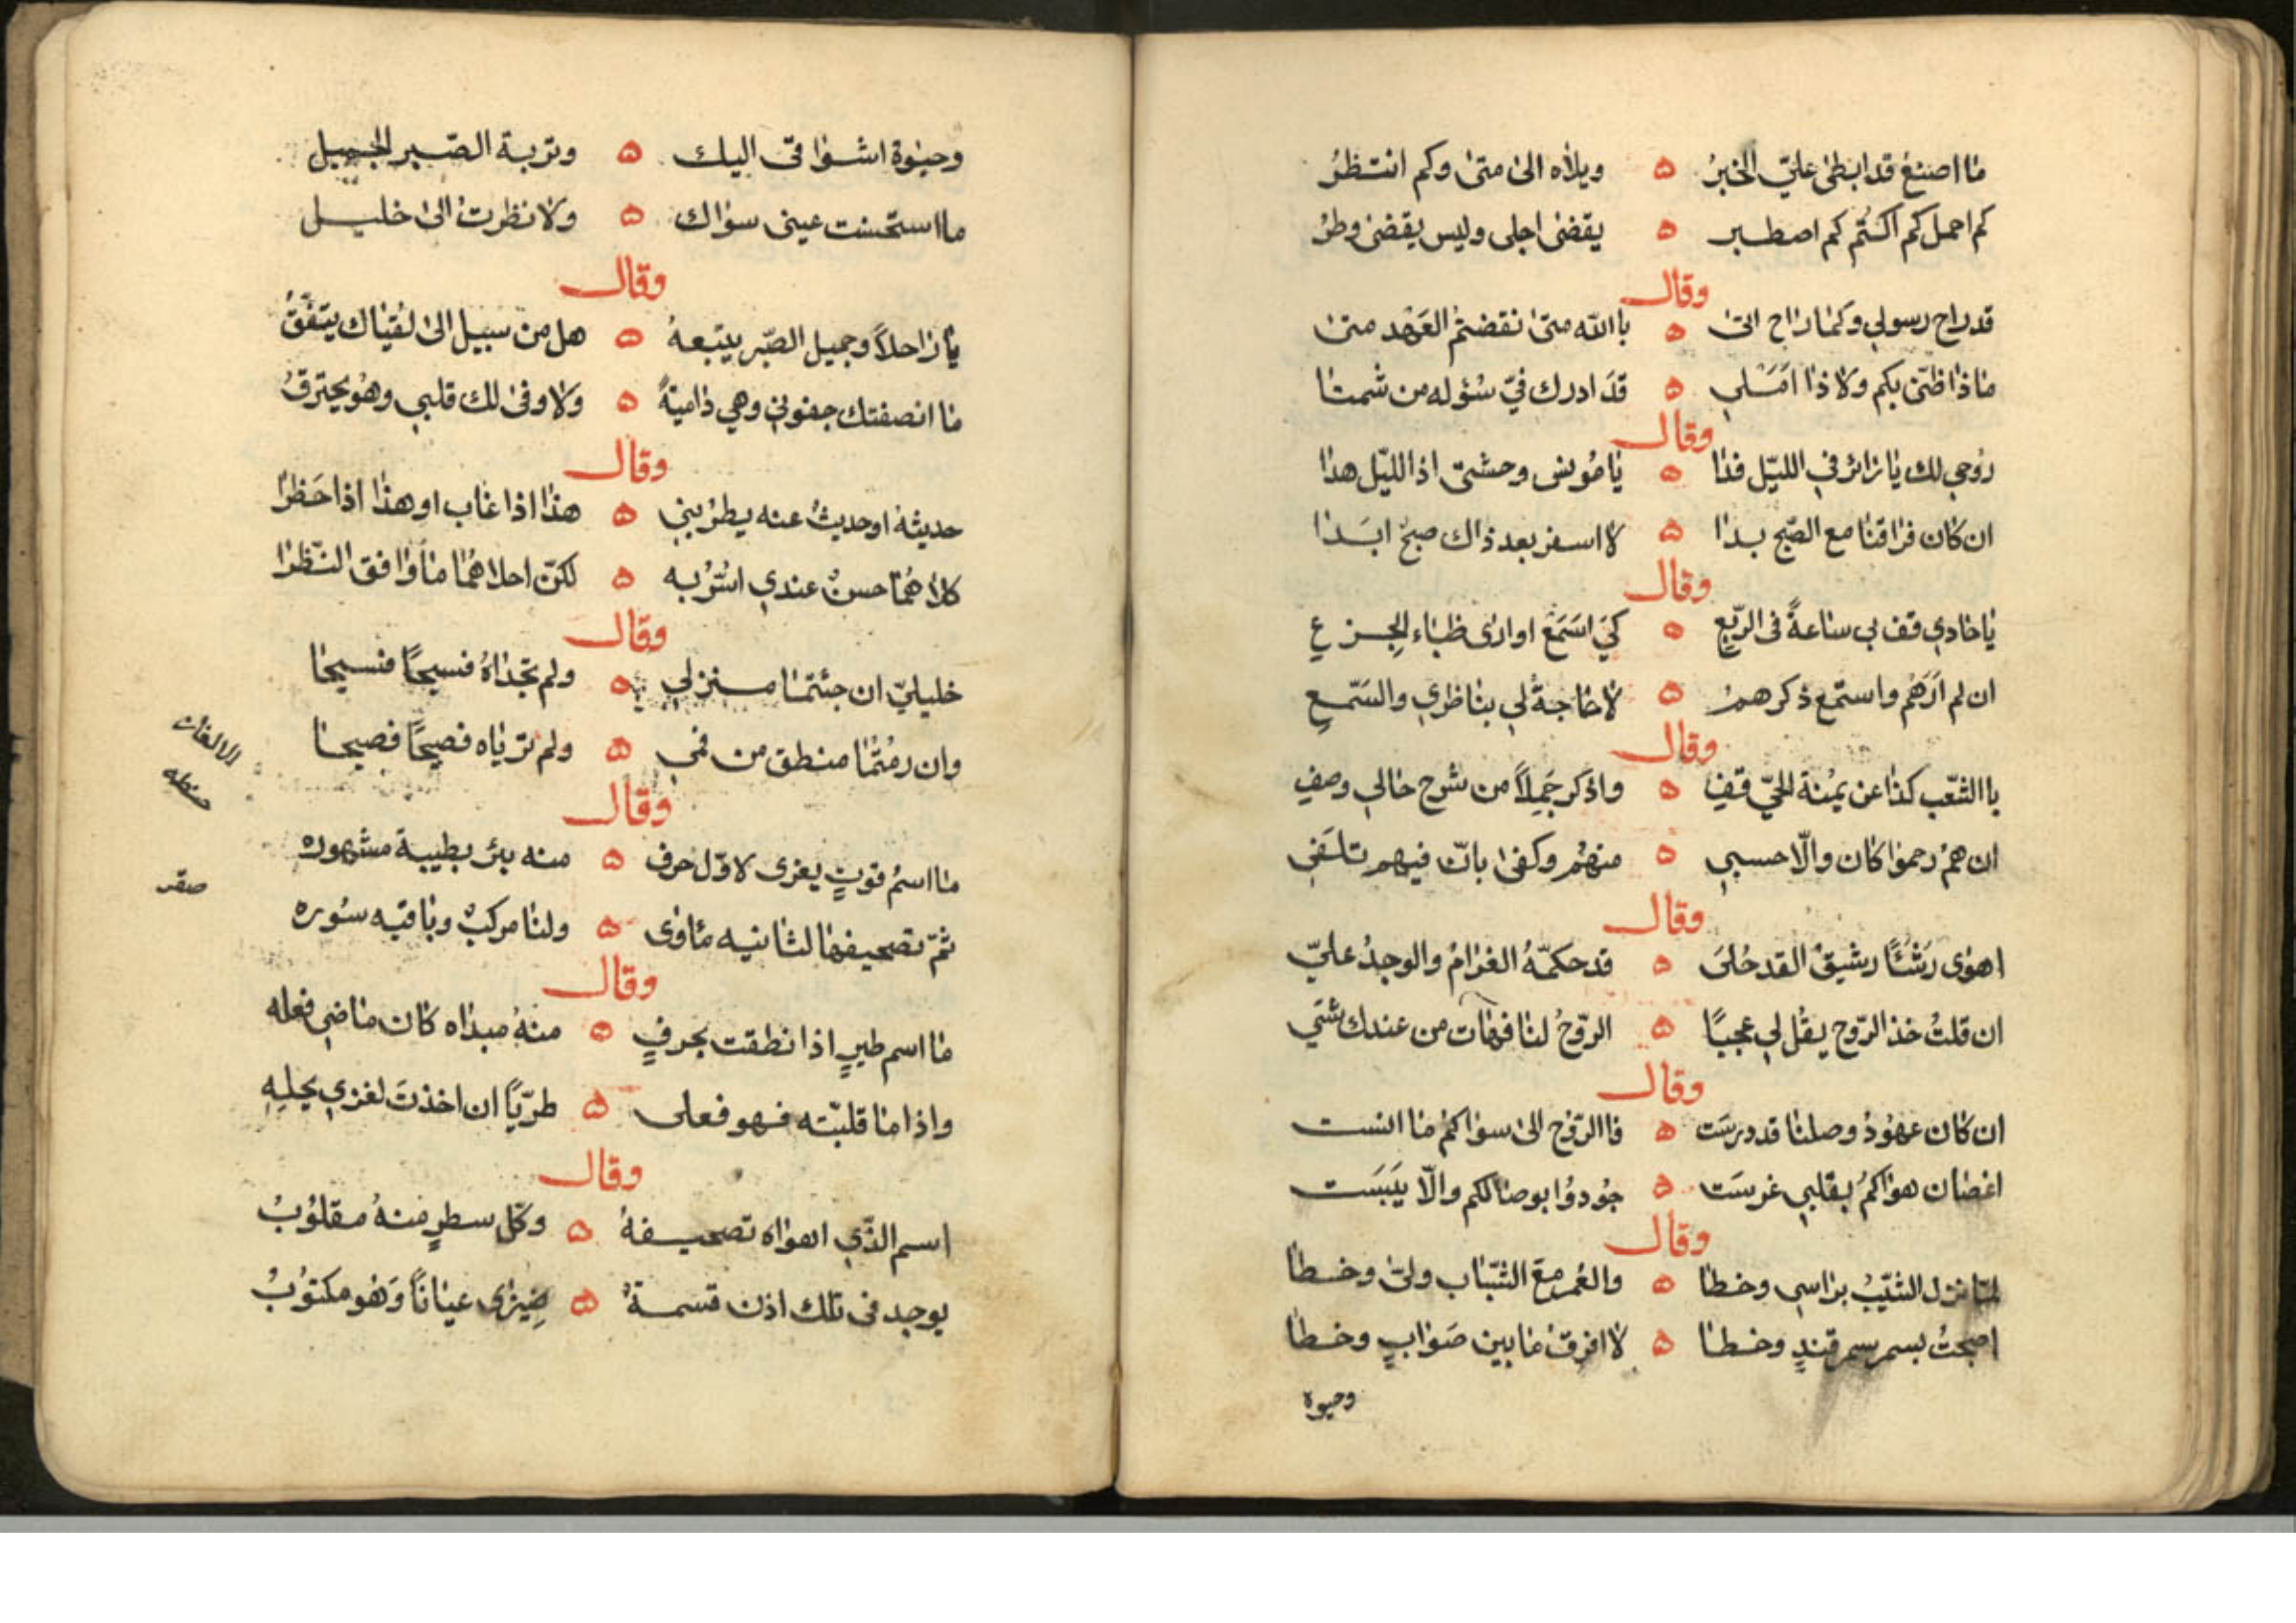 ما اصنع قد ابطى عليّ الخبرُ ه ويلاه الى متى وكم انتظرُ
كم احمل كم اكتُم كم اصطبر ه يقضى اجلى وليس يقضى وطرُ
وقال
قد راح رسولي وكما راح اتى ه باالله متى نقضتمُ العَهْد متى
ماذا ظنّى بكم ولا ذا اَمَلي ه قد ادرك فيّ سُؤله من شمتا
وقال
رُوحي لك يا زائر في الليّل فدا ه يا مُونس وحشتى اذا الليّل هدا
ان كان فراقنا مع الصّبح بدا ه لا اسفر بعد ذاك صبحٌ ابَدا
وقال
يا حادي قف بي ساعةً فى الرّبعِ ه كي اَسَمَعْ او ارى ظباء الجِزعِ
ان لم اَرَهُم واستمع ذكرهمُ ه لا حاجةُ لي بناظري والسَمّعِ
وقال
باالشّعب كذا عن يُمْنة الحيّ قفِ ه واذكر جَمِلاً من شرح حالي وصفِ
ان همُ رحموا كان والّا حسبي ه منهمُ وكفى بانّ فيهم تلَفي
وقال
اهوى رَشَئًا رشيقُ القد حُلَى ه قد حكمّهُ الغرامُ والوجدُ عليّ
ان قلتُ خذ الرّوح يقُل لي عجبًا ه الرّوحُ لنا فهات من عندك شَي
وقال
ان كان عهودُ وصلنا قد درسَت ه فاالرّوح الى سواكمُ ما انست
اغصان هواكمُ بقلبي غرسَت ه جُودوُا بوصالكم والّا يَبَسَت
وقال
لمّا نزل الشّيبُ براسي وخطا ه والعُمر معَ الشّباب ولىّ وخطا
اصبحتُ بسمر سمرقندٍ وخطا ه لا افرقُ ما بين صَوابٍ وخطا
وحيوة
وحيٰوة اشوا قى اليك ه وتربة الصّبر الجميل
ما استحسنت عينى سواك ه ولا نظرتُ الى خليل
وقال
يا راحلاً وجميل الصّبر يتبعهُ ه هل من سبيل الى لقياك يتفّقُ
ما انصفتك جفوني وهي داميةٌ ه ولا وفى لك قلبي وهُو يحترقُ
وقال
حديثهُ او حديثُ عنه يطرُبني ه هذا اذا غاب او هذا اذا حَظرا
كلاهُمُا حسنٌ عندي اسُرُبه ه لكنّ احلاهُمُا ما وافق النّظرا
وقال
خليليّ ان جئتما منزلي ه ولم تجداهُ فسيحًا فسيحا
وان رمُتُما منطق من فمي ه ولم ترياه فصيحًا فصيحا
وقال
ما اسمُ قوتٍ يعزى لاوّل حرف ه منه بئر بطيبة مشهوره
ثمّ تصحيفها لثانيه مأوى ه ولنا مركبٌ وباقيه سُوره
حنطه
صقر
وقال
ما اسم طيرٍ اذا نطقت بحرفٍ ه منهُ مبداه كان ماضي فعله
واذا ما قلبّته فهو فعلى ه طربّاً ان اخذتَ لغزي بحلِهِ
وقال
اسم الذّي اهواه تصحيفهُ ه وكلّ سطرٍ منهُ مقلوُبُ
يوجد فى تلك اذن قسمةٌ ه ضِيزى عيانًا وَهُو مكتوُبُ